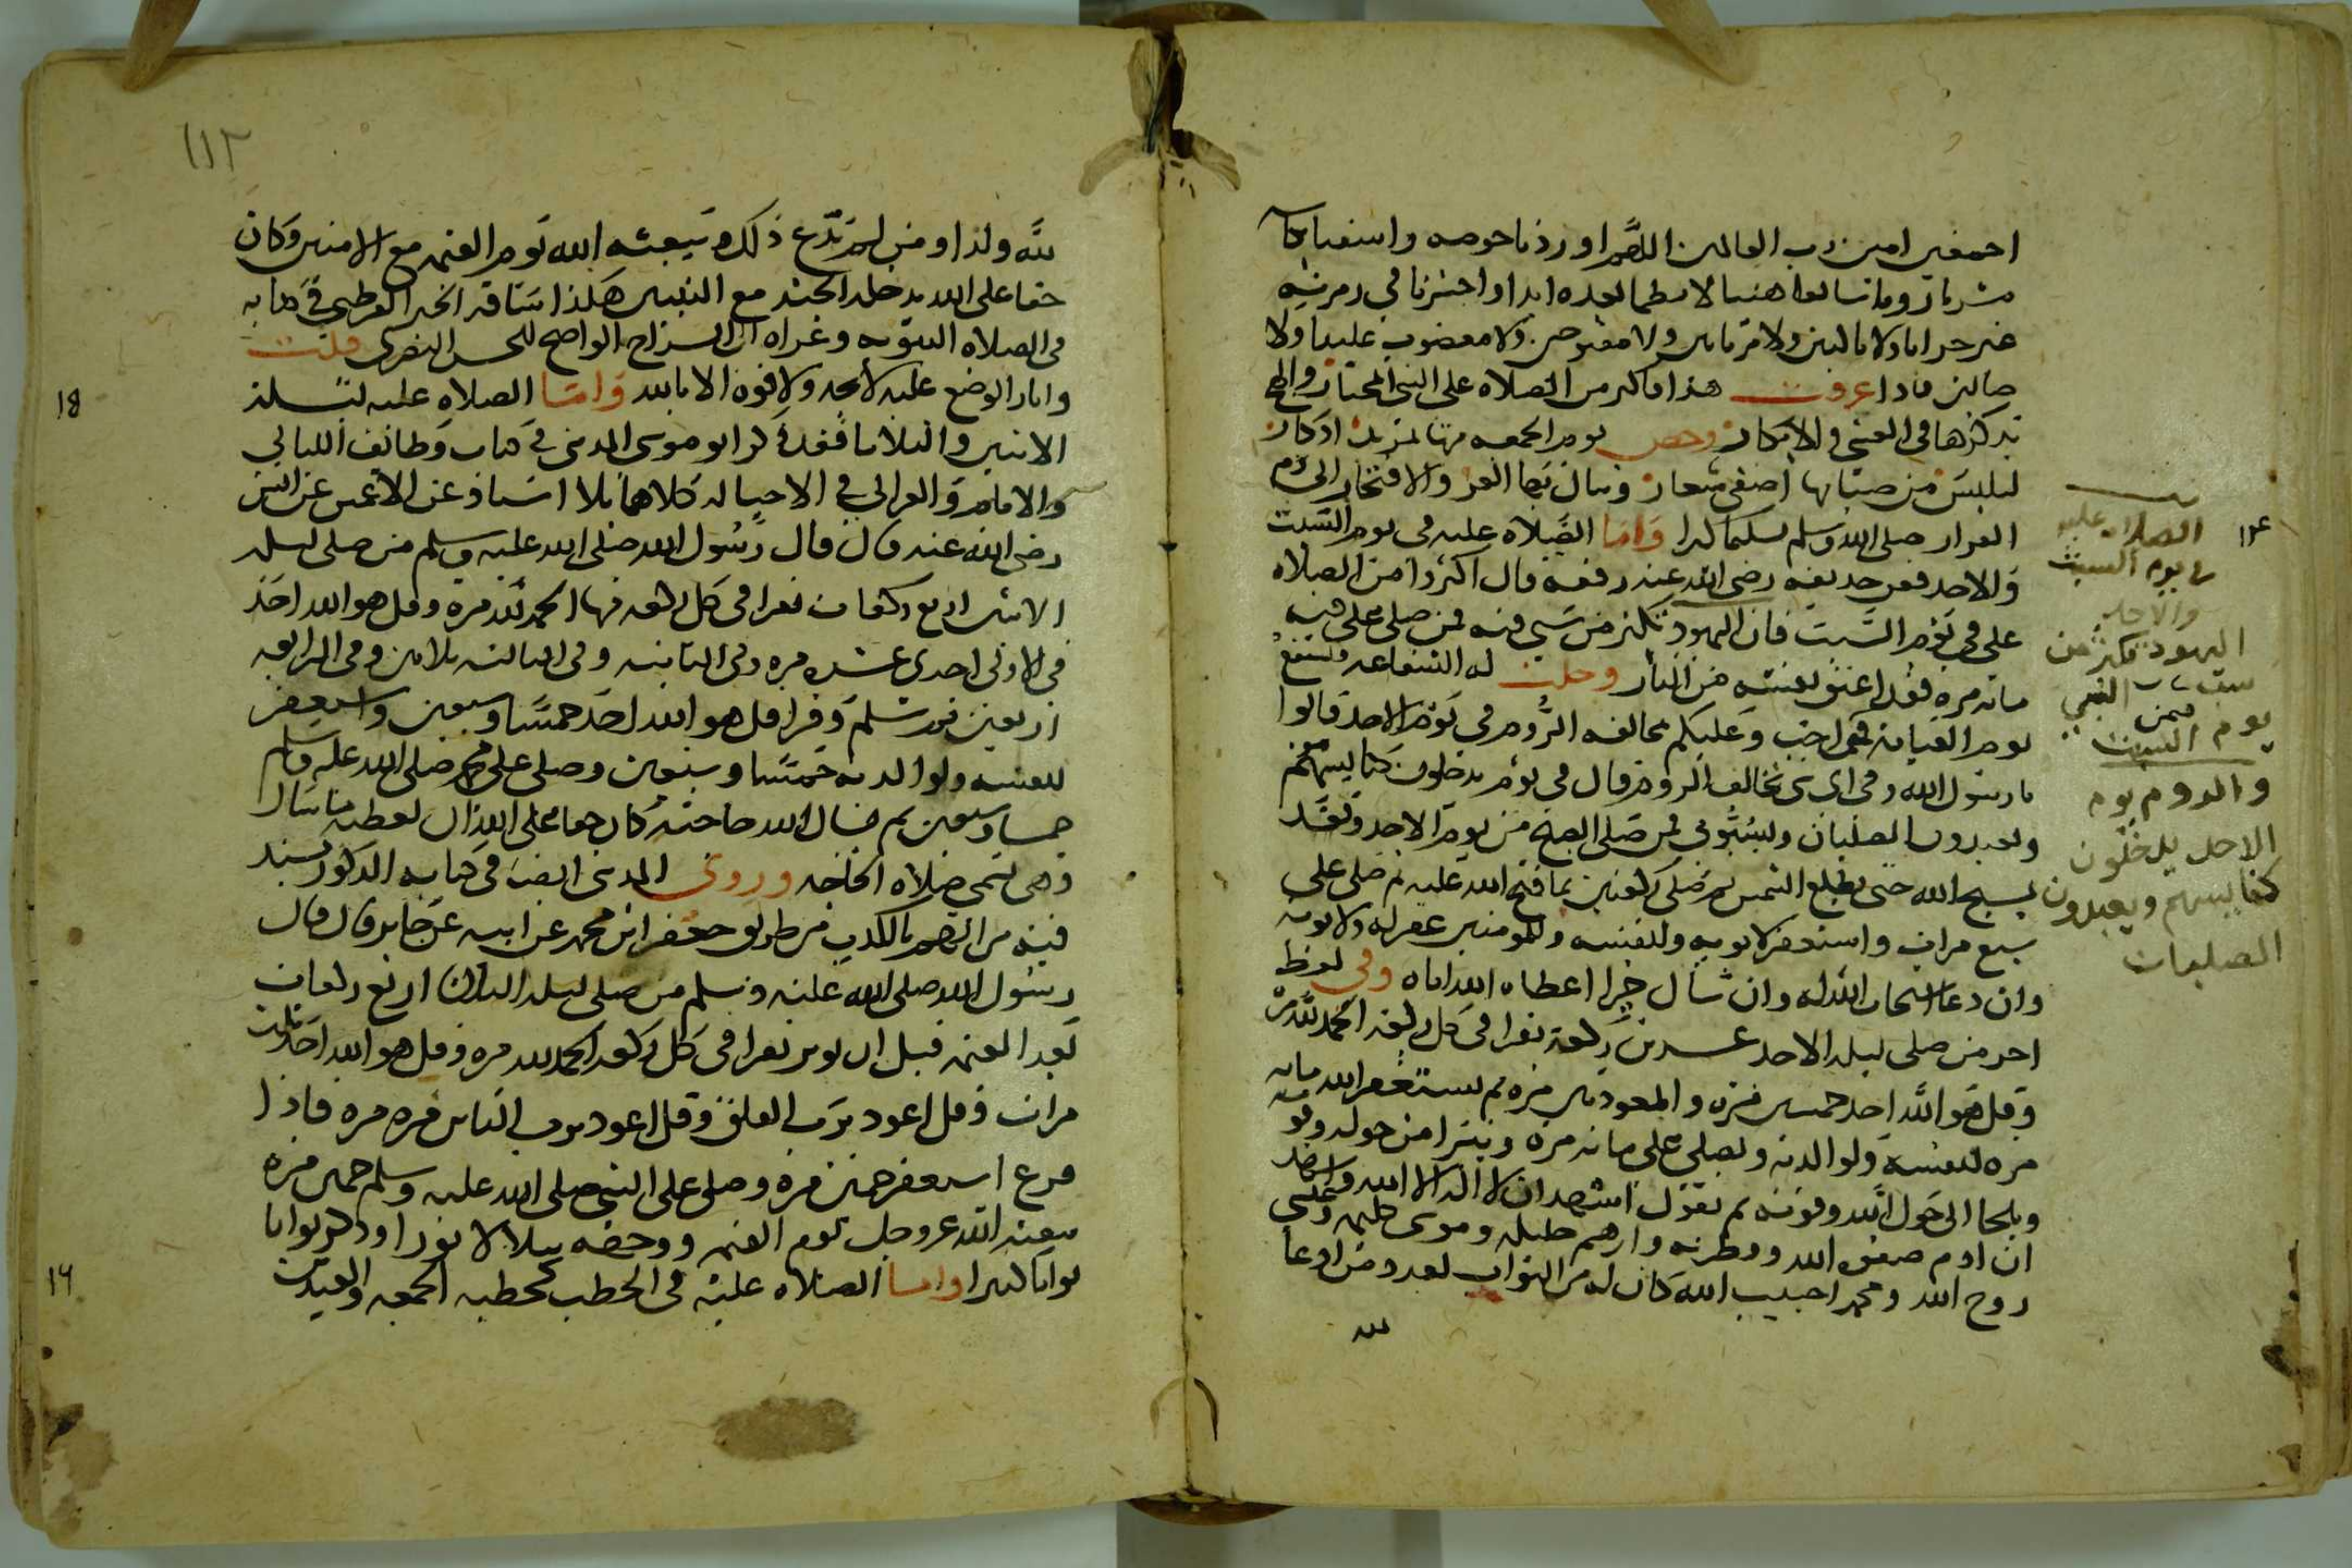 اجمعين امين رب العالمين اللهم اوردنا حوضه واسقنا بكاسه
مشربا رويا سائغا هنيا لا نظما بعده ابدا واحشرنا في زمرته
غير خزايا ولا ناكثين ولا مرتابين ولا مفتونين ولا مغضوب علينا ولا
ضالين فاذا عرفت هذا فاكثر من الصلاه على النبي المختار والهج
بذكرها في العشي والابكار وخص يوم الجمعه منها بمزيد اذكار
لتلبس من ضيائها اصفى شعار وتنال بها العز والافتخار الى دم
القرار صلى الله وسلم تسليما كثيرا واما الصلاه عليه في يوم السبت
والاحد فعن حذيفه رضي الله عنه رفعه قال اكثروا من الصلاه
علي في يوم السبت فان اليهود تكثر من سبي فيه فمن صلى علي فيه
مائه مره فقد اعتق نفسه من النار وحلت له الشفاعه فيشفع
يوم القيامه فيمن احب وعليكم بمخالفه الروم في يوم الاحد قالوا
يا رسول الله وفي اي شي نخالف الروم قال في يوم يدخلون كنايسهم
ويعبدون الصلبان ويسبوني فمن صلى الصبح من يوم الاحد وقعد
يسبح الله حتى تطلع الشمس ثم صلى ركعتين بما فتح الله عليه ثم صلى علي
سبع مرات واستغفر لابويه ولنفسه وللمومنين غفر له ولابويه
وان دعا استجاب الله له وان سال خيرا اعطاه الله اياه وفي لفظ
اخر من صلى ليله الاحد عشرين ركعة يقرا في كل ركعه الحمد لله مره
وقل هو الله احد خمسين مره والمعوذتين مره ثم يستغفر الله مايه
مره لنفسه ولوالديه ويصلي علي مائه مره ويتبرا من حوله وقوته
ويلجا الى حول الله وقوته ثم يقول اشهد ان لا اله الا الله واشهد
ان ادم صفوه الله وفطرته وابرهيم خليله وموسى كليمه وعيسى
روح الله ومحمدا حبيب الله كان له من الثواب بعدد من ادعا
لله
الصلاه عليه
في يوم السبت
والاحد
اليهود تكثر من
سب النبي
يوم السبت
والروم يوم
الاحد يدخلون
كنايسهم ويعبدون
الصلبان
١١٢
لله ولدا ومن لم يدع ذلك ويبعثه الله يوم القيمه مع الامنين وكان
حقا على الله يدخله الجنه مع النبيين هكذا ساقه القرطبي في كتابه
في الصلاه النبويه وعزاه الى السراج الواضح للحسن البصري قلت
واثار الوضع عليه لايحه ولا قوه الا بالله واما الصلاه عليه ليله
الاثنين والثلاثا فقد ذكر ابو موسى المديني في كتاب وظائف الليالي
والايام والغزالي في الاحيا له كلاهما بلا اسناد عن الاعمش عن انس
رضي الله عنه قال قال رسول الله صلى الله عليه وسلم من صلى ليله
الاثنين اربع ركعات يقرا في كل ركعه فيها الحمد لله مره وقل هو الله احد
في الاولى احدى عشره مره وفي الثانيه وفي الثالثه ثلاثين وفي الرابعه
اربعين ثم سلم وقرا قل هو الله احد خمسا وسبعين واستغفر
لنفسه ولوالديه خمسا وسبعين وصلى على محمد صلى الله عليه وسلم
خمسا وسبعين ثم سال الله حاجته كان حقا على الله ان يعطيه ما سال
وهي تسمى صلاه الحاجه وروى المديني ايضا في كتابه المذكور بسند
فيه من اتهم بالكذب من طريق جعفر ابن محمد عن ابيه عن جابر قال قال
رسول الله صلى الله عليه وسلم من صلى ليله الثلاثا اربع ركعات
بعد العتمه قبل ان يوتر يقرا في كل ركعه الحمد لله مره وقل هو الله احد ثلاث
مرات وقل اعوذ برب الفلق وقل اعوذ برب الناس مره مره فاذا
فرغ استغفر خمسين مره وصلى على النبي صلى الله عليه وسلم خمسين مره
يبعثه الله عز وجل يوم القيمه ووجهه يتلالا نورا وذكر ثوابا
ثوابا كثيرا واما الصلاه عليه في الخطب كخطبه الجمعه والعيدين
18